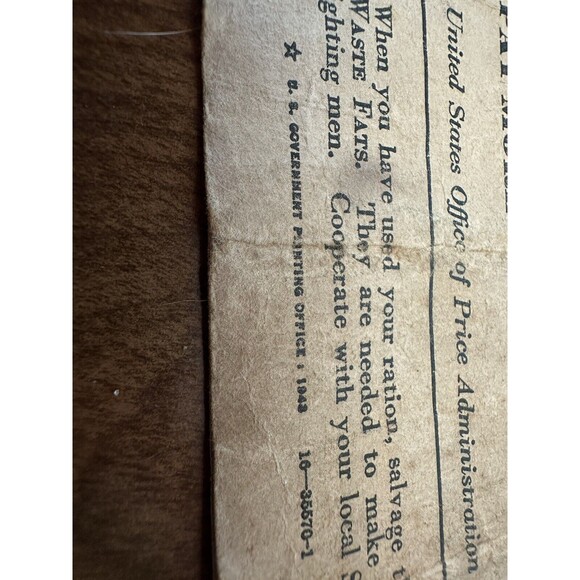 United States Office of Price Administration
When you have used your ration, salvage
WASTE FATS. They are needed to make
ghting men. Cooperate with your local
★ U. S. GOVERNMENT PRINTING OFFICE : 1943 16—35570-1